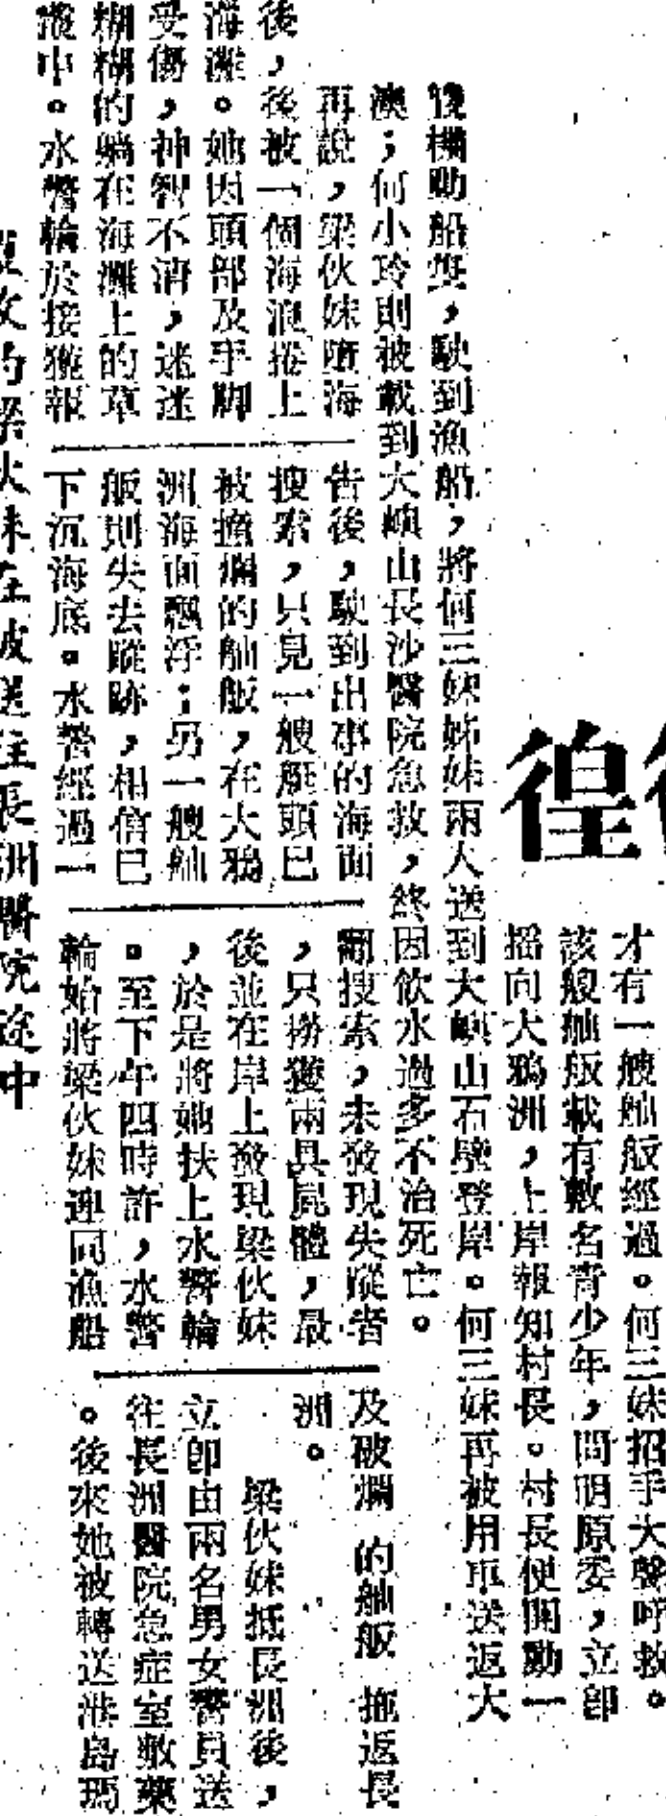 徨
才有一艘舢舨經過。何三妹招手大聲呼救。
該艘舢舨載有數名青少年，問明原委，立卽
搖向大鴉洲，上岸報知村長。村長便開動一
艘機動船隻，駛到漁船，將何三妹姊妹兩人送到大嶼山石壁登岸。何三妹再被用車送返大
澳；何小玲則被載到大嶼山長沙醫院急救，終因飲水過多不治死亡。
再說，梁伙妹墮海
後，後被一個海浪捲上
海灘。她因頭部及手脚
受傷，神智不清，迷迷
糊糊的躺在海灘上的草
叢中。水警輪於接獲報
告後，駛到出事的海面
搜索，只見一艘艇頭已
被撞爛的舢舨，在大鴉
洲海面飄浮；另一艘舢
舨則失去蹤跡，相信已
下沉海底。水警經過一
翻搜索，未發現失蹤者
，只撈獲兩具屍體，最
後並在岸上發現梁伙妹
，於是將她扶上水警輪
。至下午四時許，水警
輪始將梁伙妹連同漁船
及破爛的舢舨拖返長
洲。
梁伙妹抵長洲後，
立卽由兩名男女警員送
往長洲醫院急症室敷藥
。後來她被轉送港島瑪
獲救的梁伙妹在被送往長洲醫院途中